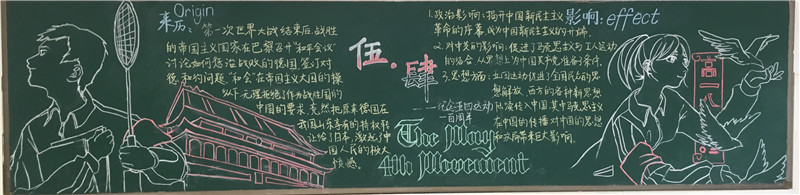 来历: Origin
第一次世界大战结束后,战胜
的帝国主义国家在巴黎召开"和平会议"
讨论如何惩治战败的德国签订对
德和约问题,"和会"在帝国主义大国的操
以下无理拒绝了作为战胜国的
中国的要求,竟然把原来德国在
我国山东享有的特权转
让给了日本,激起了中
国人民的极大
愤慨。
伍.肆
——纪念五四运动
一百周年
The May
4th Movement
影响: effect
1.政治影响:揭开中国新民主主义
革命的序幕,成为中国新民主主义的开端。
2.对中共的影响:促进了马克思主义与工人运动
的结合,从思想上为中国共产党准备了条件。
3.思想方面:五四运动促进了全国民众的思
想解放,西方的各种新思想
纷涌传入中国,其中马克思主义
在中国的传播对中国的思想
和政局带来巨大影响。
高一八